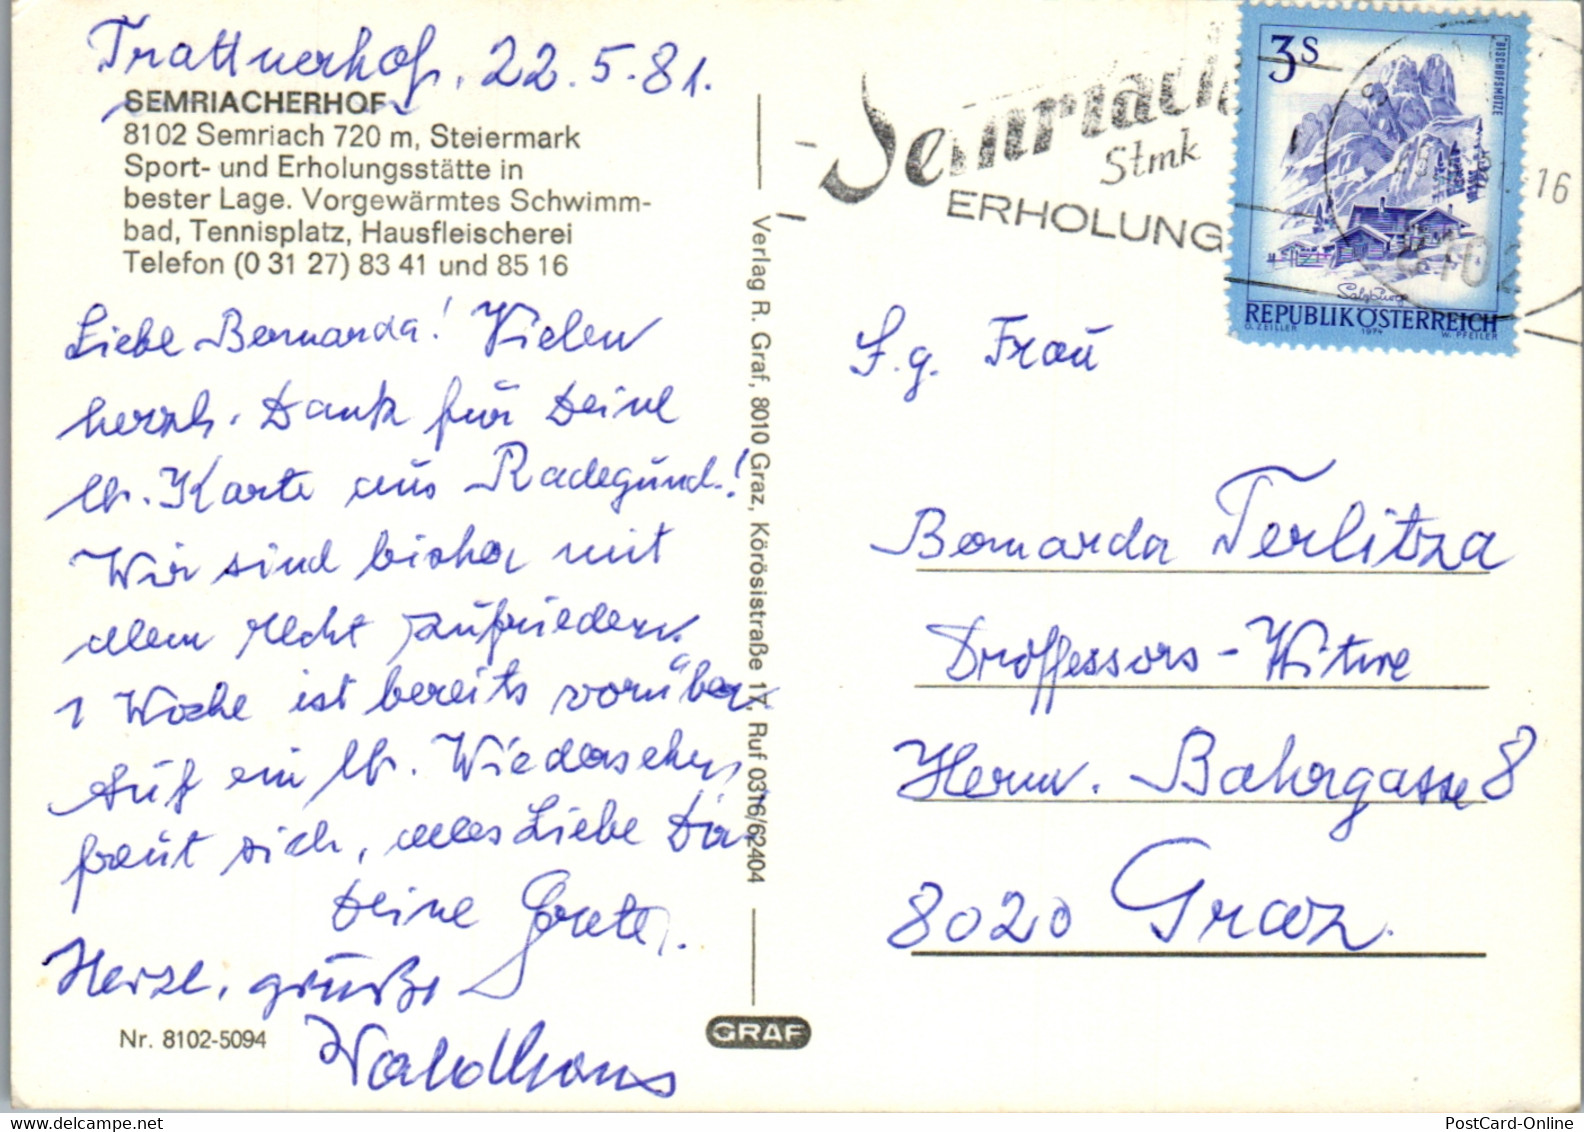 Trattnerhof, 22.5.81.
SEMRIACHERHOF
8102 Semriach 720 m, Steiermark
Sport- und Erholungsstätte in
bester Lage. Vorgewärmtes Schwimm-
bad, Tennisplatz, Hausfleischerei
Telefon (0 31 27) 83 41 und 85 16
Liebe Bernarda! Vielen
herzl. Dank für Deine
lb. Karte aus Radegund!
Wir sind bisher mit
allem recht zufrieden.
1 Woche ist bereits vorüber.
Auf ein lb. Wiedersehen
freut sich, alles Liebe Dir
Deine Grete.
Herzl. grüße
Nr. 8102-5094
Verlag R. Graf, 8010 Graz, Körösistraße 17, Ruf 0316/62404
GRAF
Semriach
Stmk
ERHOLUNG
16
8102
3 S
"BISCHOFSMÜTZE"
Salzburg
REPUBLIK ÖSTERREICH
O. ZEILLER 1974 W. PFEILER
S. g. Frau
Bernarda Terlitza
Professors-Witwe
Herm. Bahrgasse 8
8020 Graz
PostCard-Online